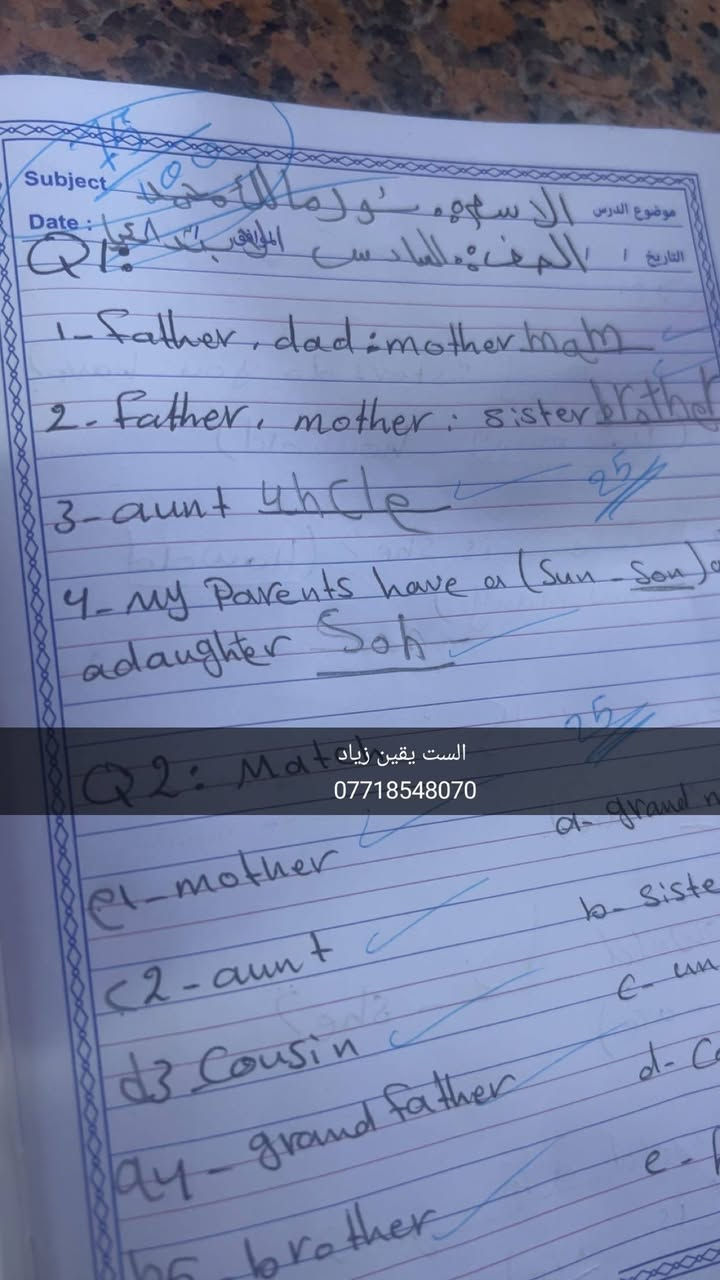 Subject موضوع الدرس
الاسم
Date : التاريخ / /
Q1:
1- father, dad : mother mam
2- father, mother : sister brother
3- aunt uncle
25
4- My Parents have a (Sun - Son)
a daughter Son
25
الست يقين زياد
07718548070
Q2: Match
e1- mother a- grand
c2- aunt b- siste
d3 Cousin c- un
a4- grand father d- Co
b5 brother e-